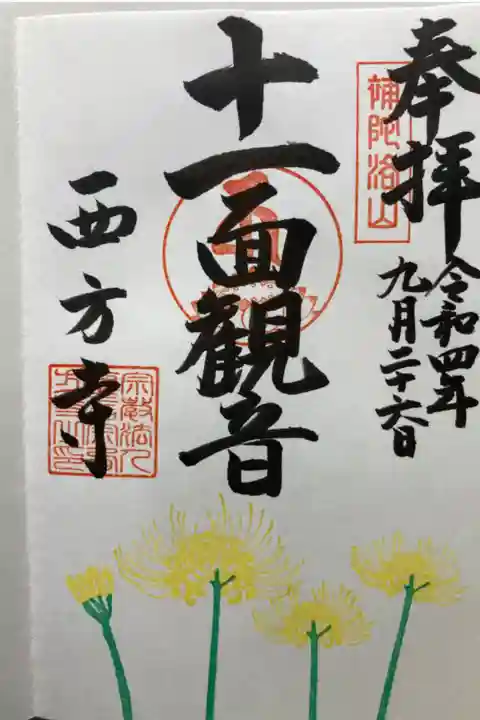 奉拝
補陀洛山
令和四年
九月二十六日
十一面観音
西方寺